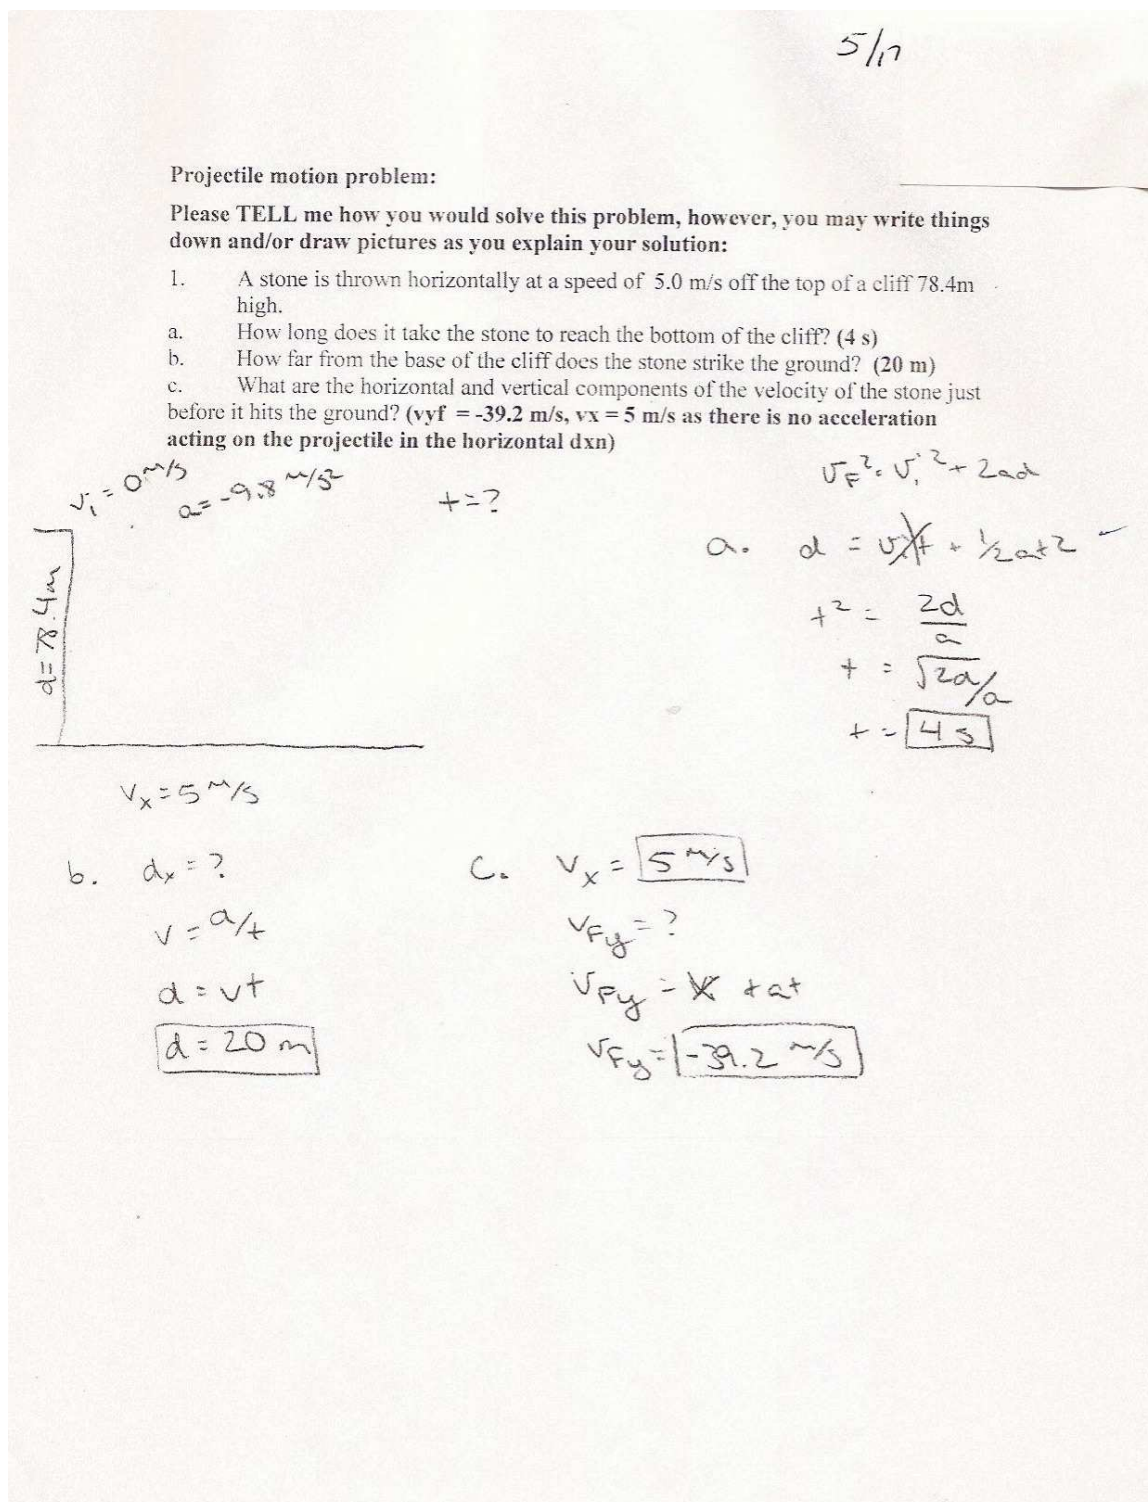 5/17
Projectile motion problem:
Please TELL me how you would solve this problem, however, you may write things
down and/or draw pictures as you explain your solution:
1. A stone is thrown horizontally at a speed of 5.0 m/s off the top of a cliff 78.4m
high.
a. How long does it take the stone to reach the bottom of the cliff? (4 s)
b. How far from the base of the cliff does the stone strike the ground? (20 m)
c. What are the horizontal and vertical components of the velocity of the stone just
before it hits the ground? (vyf = -39.2 m/s, vx = 5 m/s as there is no acceleration
acting on the projectile in the horizontal dxn)
vi = 0 m/s
a = -9.8 m/s²
t = ?
vF² = vi² + 2ad
d = 78.4m
a. d = vit + 1/2at2
t² = 2d/a
t = √2d/a
t = 4 s
vx = 5 m/s
b. dx = ?
v = d/t
d = vt
d = 20 m
c. vx = 5 m/s
vFy = ?
vFy = vi + at
vFy = -39.2 m/s